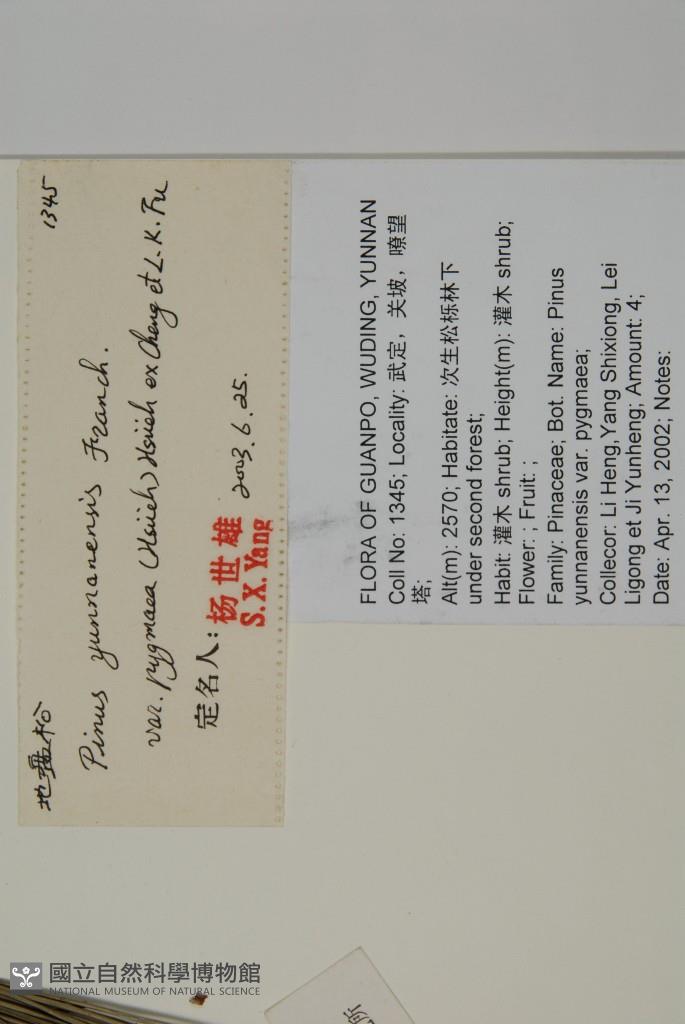 地盘松 1345
Pinus yunnanensis Franch.
var. pygmaea (Hsüeh) Hsüeh ex Cheng et L.K.Fu
定名人: 杨世雄 2003.6.25.
S.X.Yang
FLORA OF GUANPO, WUDING, YUNNAN
Coll No: 1345; Locality: 武定，关坡，嘹望
塔;
Alt(m): 2570; Habitate: 次生松栎林下
under second forest;
Habit: 灌木 shrub; Height(m): 灌木 shrub;
Flower: ; Fruit: ;
Family: Pinaceae; Bot. Name: Pinus
yunnanensis var. pygmaea;
Collecor: Li Heng,Yang Shixiong, Lei
Ligong et Ji Yunheng; Amount: 4;
Date: Apr. 13, 2002; Notes:
國立自然科學博物館
NATIONAL MUSEUM OF NATURAL SCIENCE